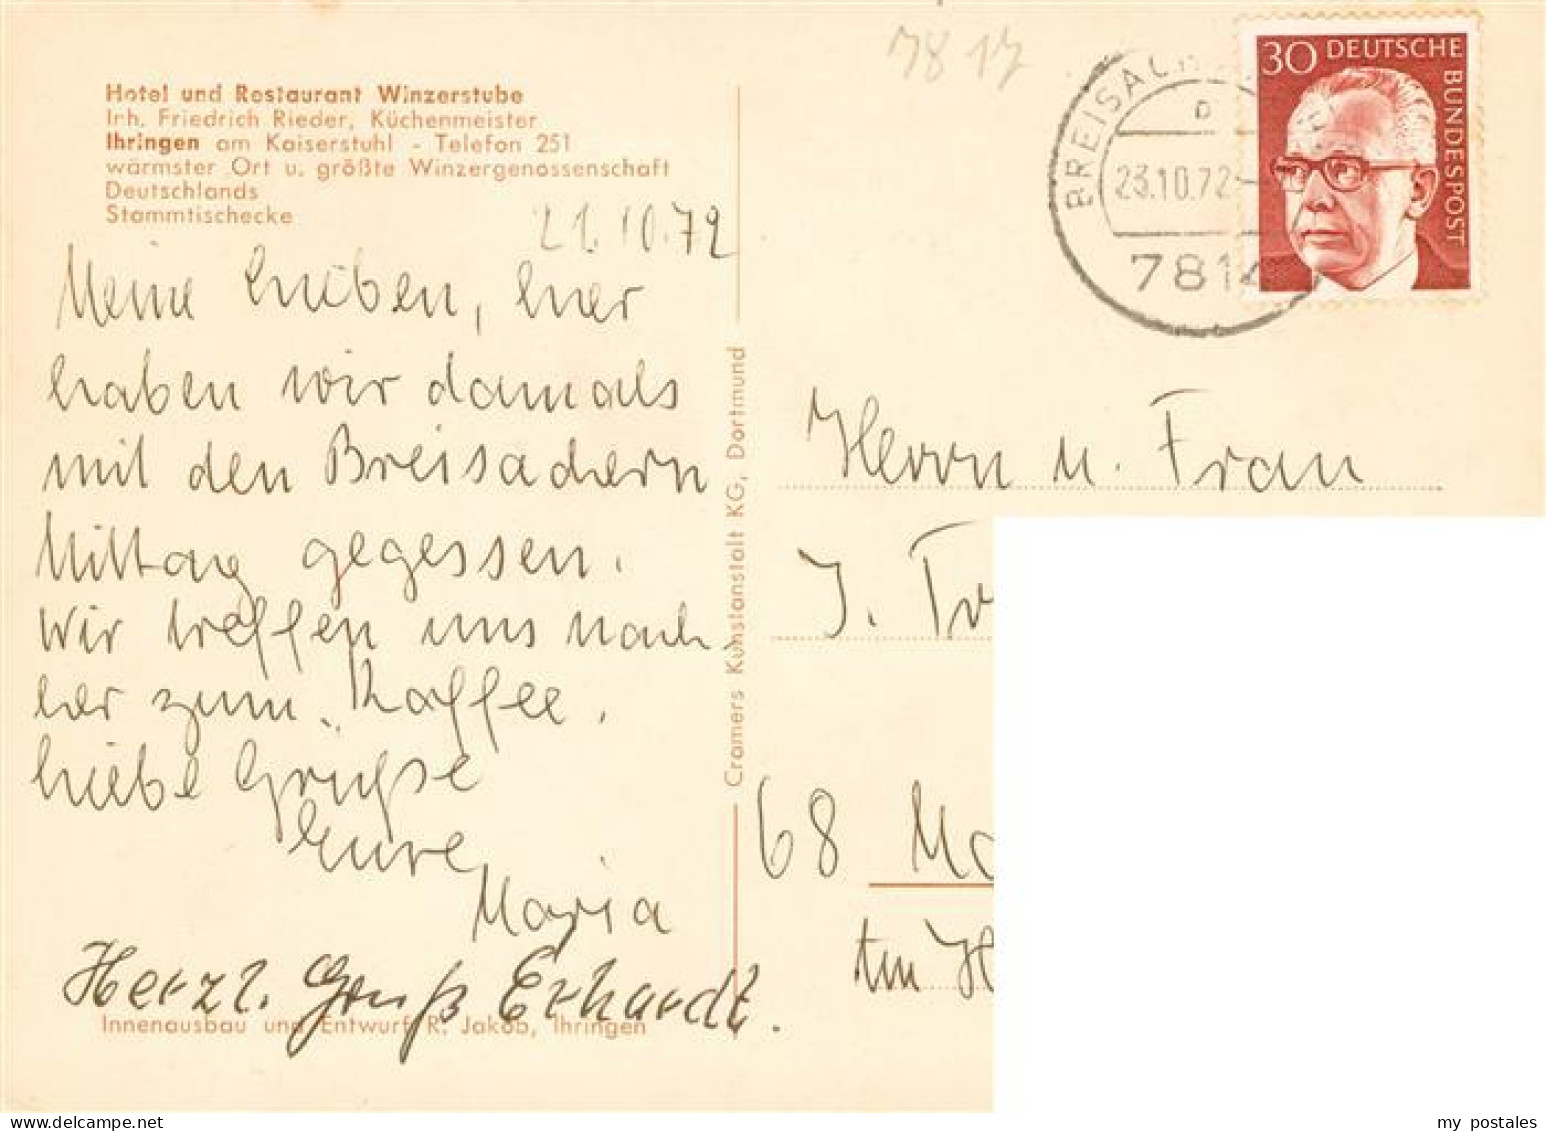 Hotel und Restaurant Winzerstube
Inh. Friedrich Rieder, Küchenmeister
Ihringen am Kaiserstuhl - Telefon 251
wärmster Ort u. größte Winzergenossenschaft
Deutschlands
Stammtischecke
21.10.72
Meine Lieben, hier
haben wir damals
mit den Breisachern
Mittag gegessen.
Wir treffen uns nach
her zum Kaffee.
Liebe Grüße
Eure
Maria
Herzl. Gruß Erhardt.
Innenausbau und Entwurf R. Jakob, Ihringen
Cramers Kunstanstalt KG, Dortmund
7817
BREISACH
23.10.72
7814
30 DEUTSCHE
BUNDESPOST
Herrn u. Frau
J.
68
my postales